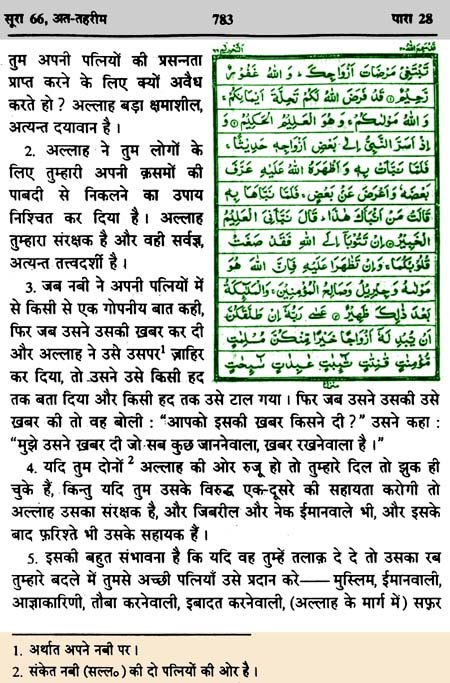 सूरा 66, अत-तहरीम
783
पारा 28
तुम अपनी पत्नियों की प्रसन्नता
प्राप्त करने के लिए क्यों अवैध
करते हो ? अल्लाह बड़ा क्षमाशील,
अत्यन्त दयावान है ।
2. अल्लाह ने तुम लोगों के
लिए तुम्हारी अपनी क़समों की
पाबदी से निकलने का उपाय
निश्चित कर दिया है । अल्लाह
तुम्हारा संरक्षक है और वही सर्वज्ञ,
अत्यन्त तत्त्वदर्शी है ।
3. जब नबी ने अपनी पत्नियों में
से किसी से एक गोपनीय बात कही,
फिर जब उसने उसकी ख़बर कर दी
और अल्लाह ने उसे उसपर¹ ज़ाहिर
कर दिया, तो उसने उसे किसी हद
तक बता दिया और किसी हद तक उसे टाल गया । फिर जब उसने उसकी उसे
ख़बर की तो वह बोली : “आपको इसकी ख़बर किसने दी ?” उसने कहा :
“मुझे उसने ख़बर दी जो सब कुछ जाननेवाला, ख़बर रखनेवाला है ।”
4. यदि तुम दोनों ² अल्लाह की ओर रुजू हो तो तुम्हारे दिल तो झुक ही
चुके हैं, किन्तु यदि तुम उसके विरुद्ध एक-दूसरे की सहायता करोगी तो
अल्लाह उसका संरक्षक है, और जिबरील और नेक ईमानवाले भी, और इसके
बाद फ़रिश्ते भी उसके सहायक हैं ।
5. इसकी बहुत संभावना है कि यदि वह तुम्हें तलाक़ दे दे तो उसका रब
तुम्हारे बदले में तुमसे अच्छी पत्नियाँ उसे प्रदान करे—— मुस्लिम, ईमानवाली,
आज्ञाकारिणी, तौबा करनेवाली, इबादत करनेवाली, (अल्लाह के मार्ग में) सफ़र
تَبْتَغِىْ مَرْضَاتَ اَزْوَاجِكَ ؕ وَ اللّٰهُ غَفُوْرٌ
رَّحِيْمٌ ۝ قَدْ فَرَضَ اللّٰهُ لَكُمْ تَحِلَّةَ اَيْمَانِكُمْ ۚ
وَ اللّٰهُ مَوْلٰىكُمْ ۚ وَهُوَ الْعَلِيْمُ الْحَكِيْمُ ۝ وَ
اِذْ اَسَرَّ النَّبِىُّ اِلٰى بَعْضِ اَزْوَاجِهٖ حَدِيْثًا ۚ
فَلَمَّا نَبَّاَتْ بِهٖ وَ اَظْهَرَهُ اللّٰهُ عَلَيْهِ عَرَّفَ
بَعْضَهٗ وَ اَعْرَضَ عَنْۢ بَعْضٍ ۚ فَلَمَّا نَبَّاَهَا بِهٖ
قَالَتْ مَنْ اَنْۢبَاَكَ هٰذَا ؕ قَالَ نَبَّاَنِىَ الْعَلِيْمُ
الْخَبِيْرُ ۝ اِنْ تَتُوْبَاۤ اِلَى اللّٰهِ فَقَدْ صَغَتْ
قُلُوْبُكُمَا ۚ وَ اِنْ تَظٰهَرَا عَلَيْهِ فَاِنَّ اللّٰهَ هُوَ
مَوْلٰىهُ وَجِبْرِيْلُ وَصَالِحُ الْمُؤْمِنِيْنَ ۚ وَالْمَلٰٓئِكَةُ
بَعْدَ ذٰلِكَ ظَهِيْرٌ ۝ عَسٰى رَبُّهٗۤ اِنْ طَلَّقَكُنَّ
اَنْ يُّبْدِلَهٗۤ اَزْوَاجًا خَيْرًا مِّنْكُنَّ مُسْلِمٰتٍ
مُّؤْمِنٰتٍ قٰنِتٰتٍ تٰٓئِبٰتٍ عٰبِدٰتٍ سٰٓئِحٰتٍ
1. अर्थात अपने नबी पर ।
2. संकेत नबी (सल्ल॰) की दो पत्नियों की ओर है ।